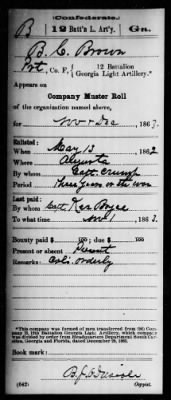 (Confederate.)
B 12 Batt'n L. Art'y. Ga.
B. C. Brown
Pvt, Co. F, 12 Battalion Georgia Light Artillery.*
Appears on
Company Muster Roll
of the organization named above,
for Nov & Dec, 1863.
Enlisted:
When May 13, 1862
Where Augusta
By whom Capt. Crump
Period Three years or the war
Last paid:
By whom Capt. Ker Boyce
To what time Nov 1, 1863.
Bounty paid $ 100 ; due $ 100
Present or absent Present
Remarks: Col's orderly
*This company was formed of men transferred from (2d) Company D, 12th Battalion Georgia Light Artillery, which company was divided by order from Headquarters Department South Carolina, Georgia and Florida, dated December
Book mark:
(642)
Copyist.